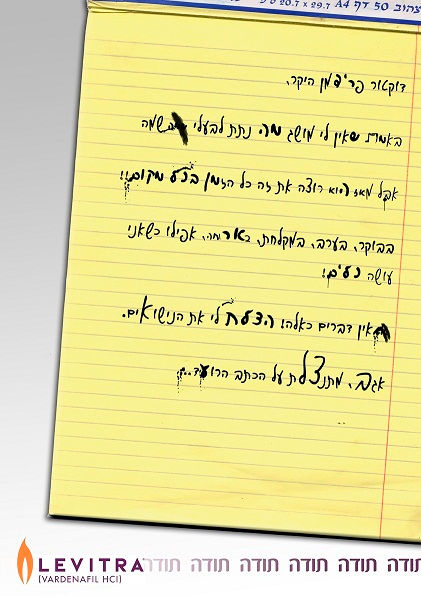 צהוב 50 דף A4 29.7 x 20.7
דוקטור היקר,
באמת שאין לי מושג מה נתת לבעלי
אבל מאז הוא רוצה את זה כל הזמן בכל מקום!!
בבוקר, בערב, במקלחת, אפילו כשאני
עושה כלים!
אין דברים כאלה! הצלת לי את הנישואים.
אגב, מתנצלת על הכתב הרועד...
LEVITRA תודה תודה תודה תודה תודה תודה
(VARDENAFIL HCl)